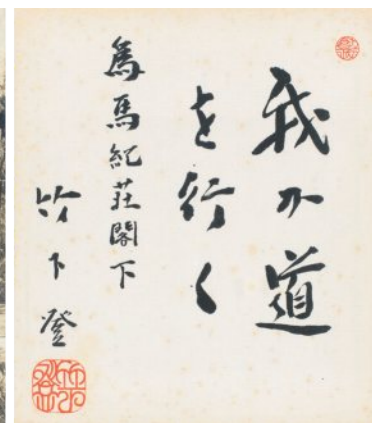 我が道
を行く
為馬紀莊閣下
竹下登